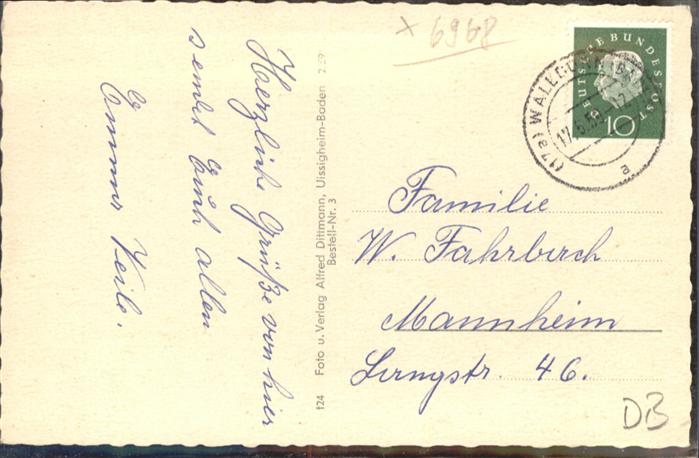 Herzliche Grüße von hier
sendet Euch allen
Emma Keilo.
t24 Foto u. Verlag Alfred Dittmann, Uissigheim-Baden 2.59
Bestell-Nr. 3
x 6968
DEUTSCHE BUNDESPOST
10
(17a) WALLDÜRN
17.6.59
a
Familie
W. Fahrbirch
Mannheim
46.
DB